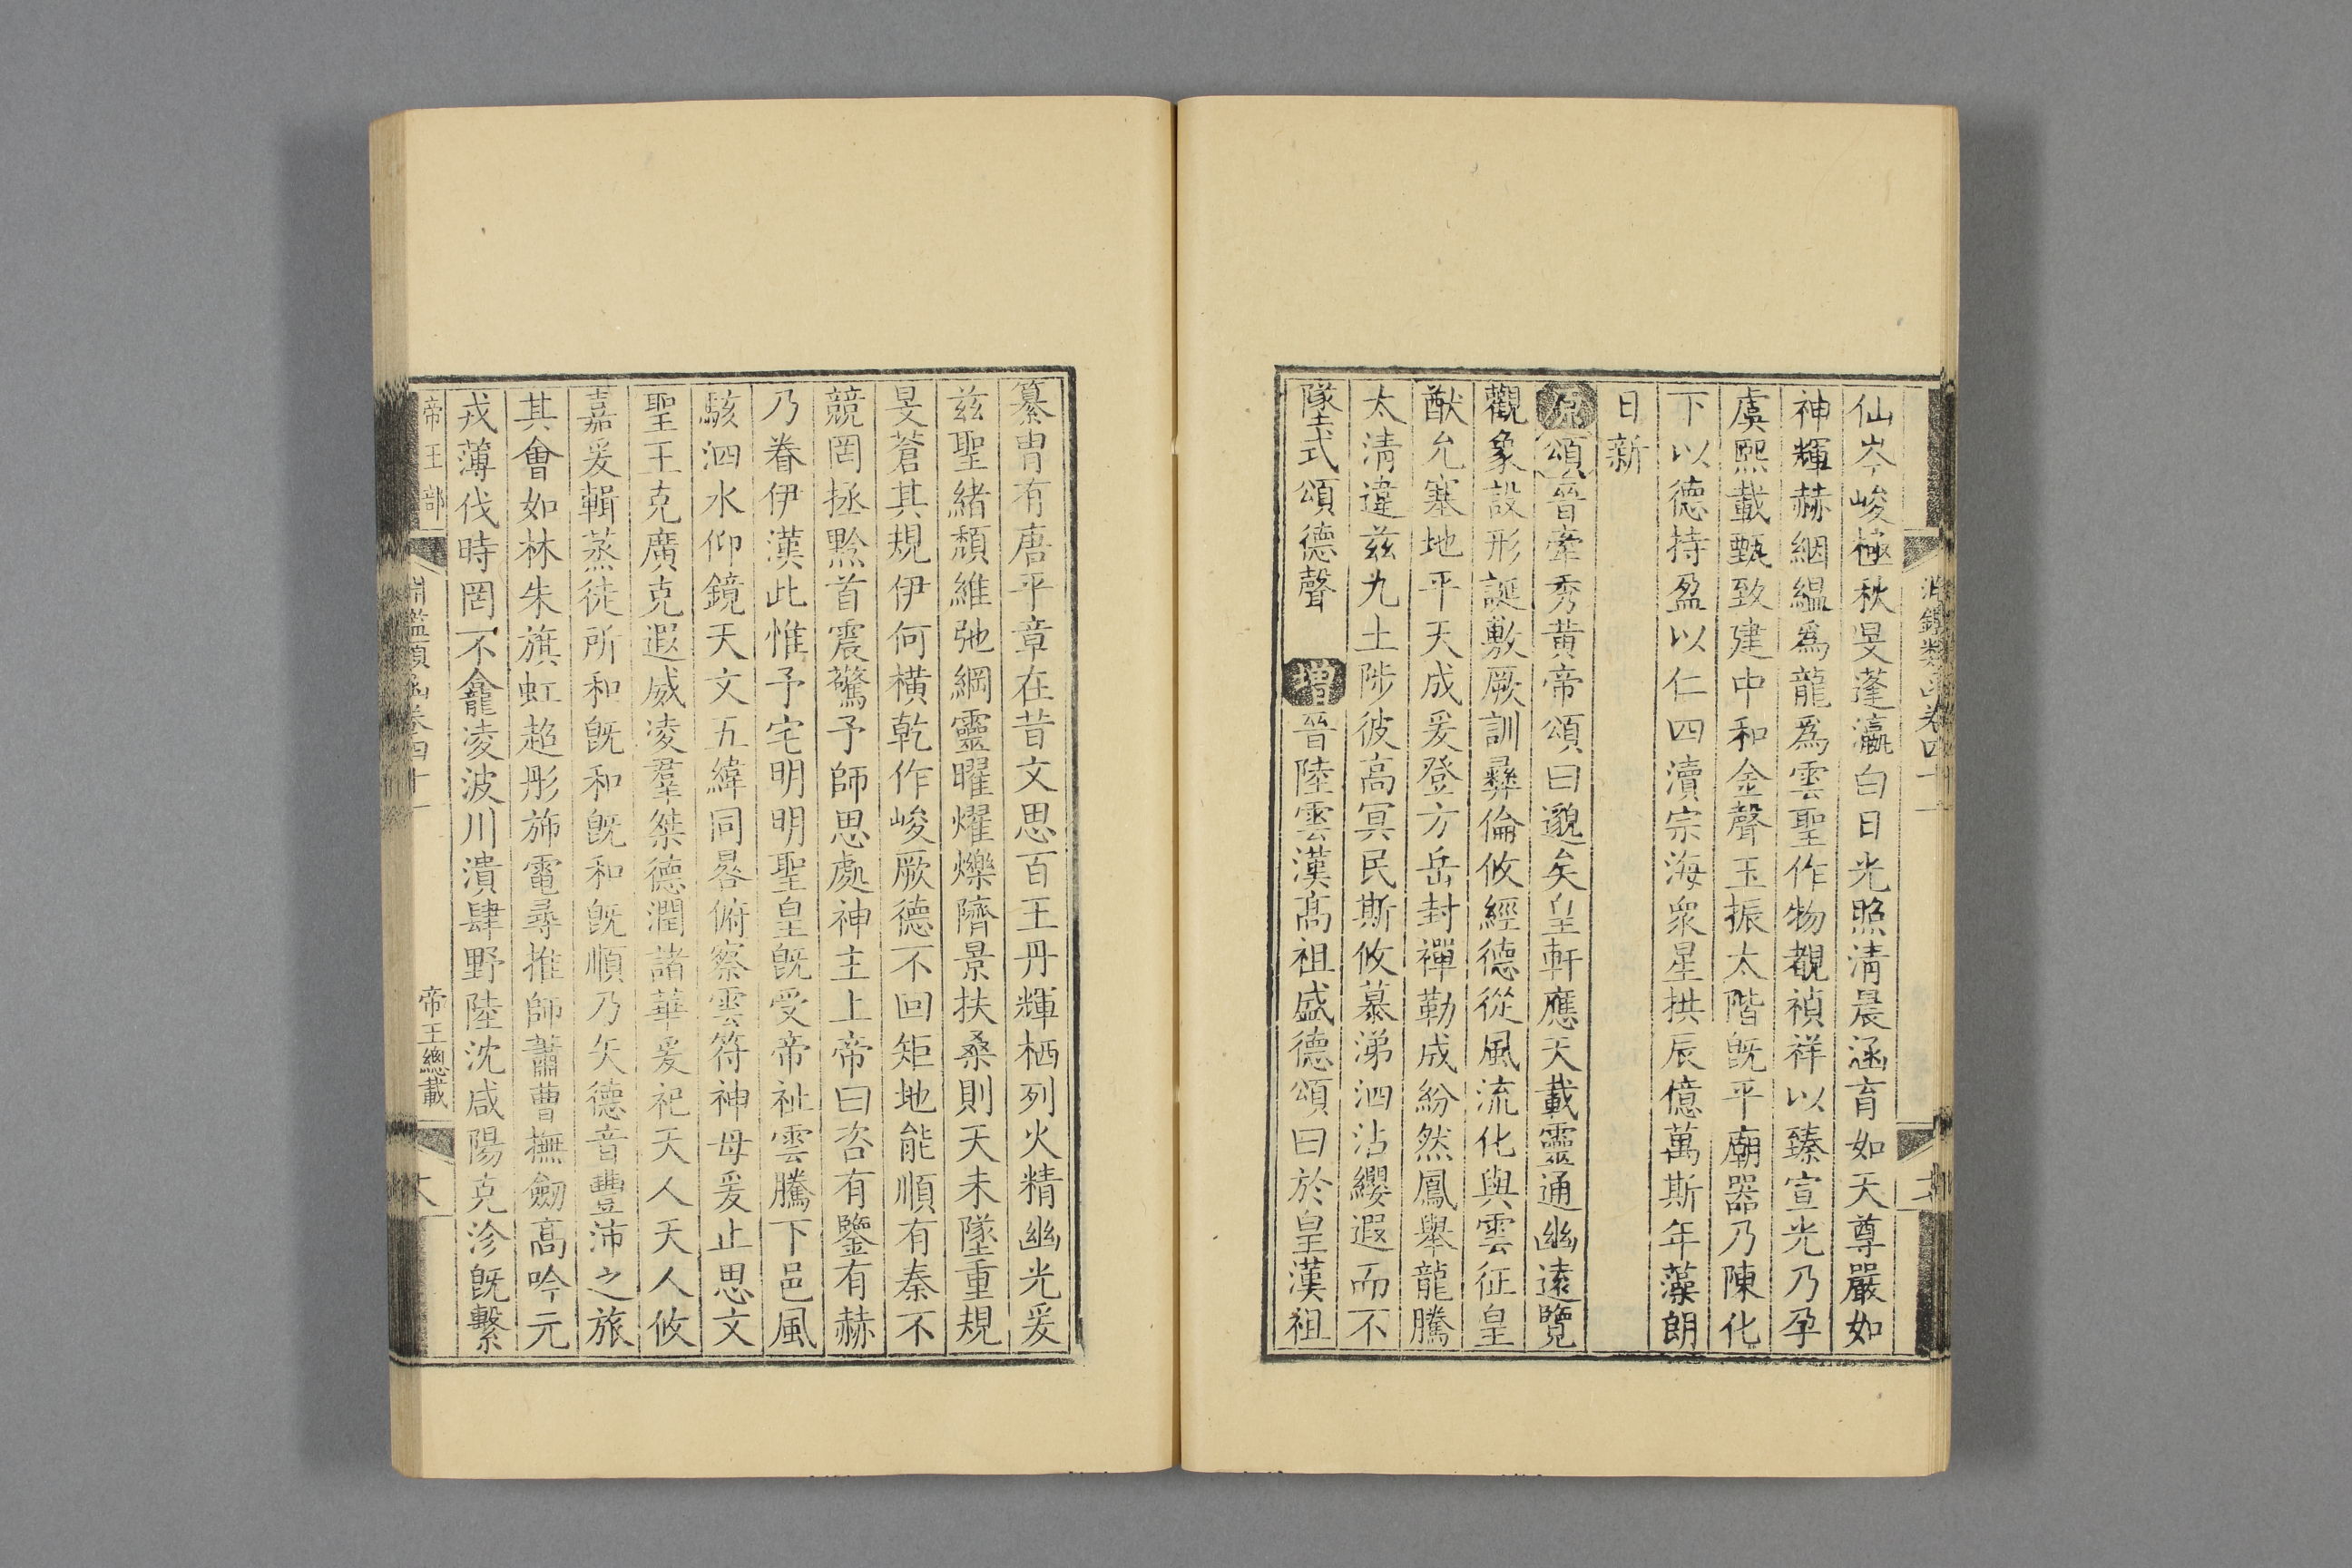 淵鑑類函卷四十一
仙岑峻極秋旻蓬瀛白日光照清晨涵育如天尊嚴如
神輝赫絪縕爲龍爲雲聖作物覩禎祥以臻宣光乃孕
虞熙載甄致建中和金聲玉振太階旣平廟器乃陳化
下以德持盈以仁四瀆宗海衆星拱辰億萬斯年藻朗
日新
原頌晉牽秀黄帝頌曰邈矣皇軒應天載靈通幽遠覽
觀象設形誕敷厥訓彛倫攸經德從風流化與雲征皇
猷允塞地平天成爰登方岳封禪勒成紛然鳳舉龍騰
太清違兹九土陟彼高冥民斯攸慕涕泗沾纓遐而不
墜式頌德聲 增晉陸雲漢高祖盛德頌曰於皇漢祖
纂冑有唐平章在昔文思百王丹輝栖列火精幽光爰
兹聖緒頽維弛綱靈曜燿爍隮景扶桑則天未墜重規
旻蒼其規伊何横乾作峻厥德不回矩地能順有秦不
競罔拯黔首震驚予師思處神主上帝曰咨有鑒有赫
乃眷伊漢此惟予宅明明聖皇旣受帝祉雲騰下邑風
駭泗水仰鏡天文五緯同晷俯察雲符神母爰止思文
聖王克廣克遐威凌羣桀德潤諸華爰祀天人天人攸
嘉爰輯蒸徒所和旣和旣和旣順乃矢德音豐沛之旅
其會如林朱旗虹超彤斾電尋推師蕭曹撫劒高吟元
戎薄伐時罔不龕凌波川潰肆野陸沈咸陽克沴旣繫
帝王部 淵鑑類函卷四十一 帝王總載